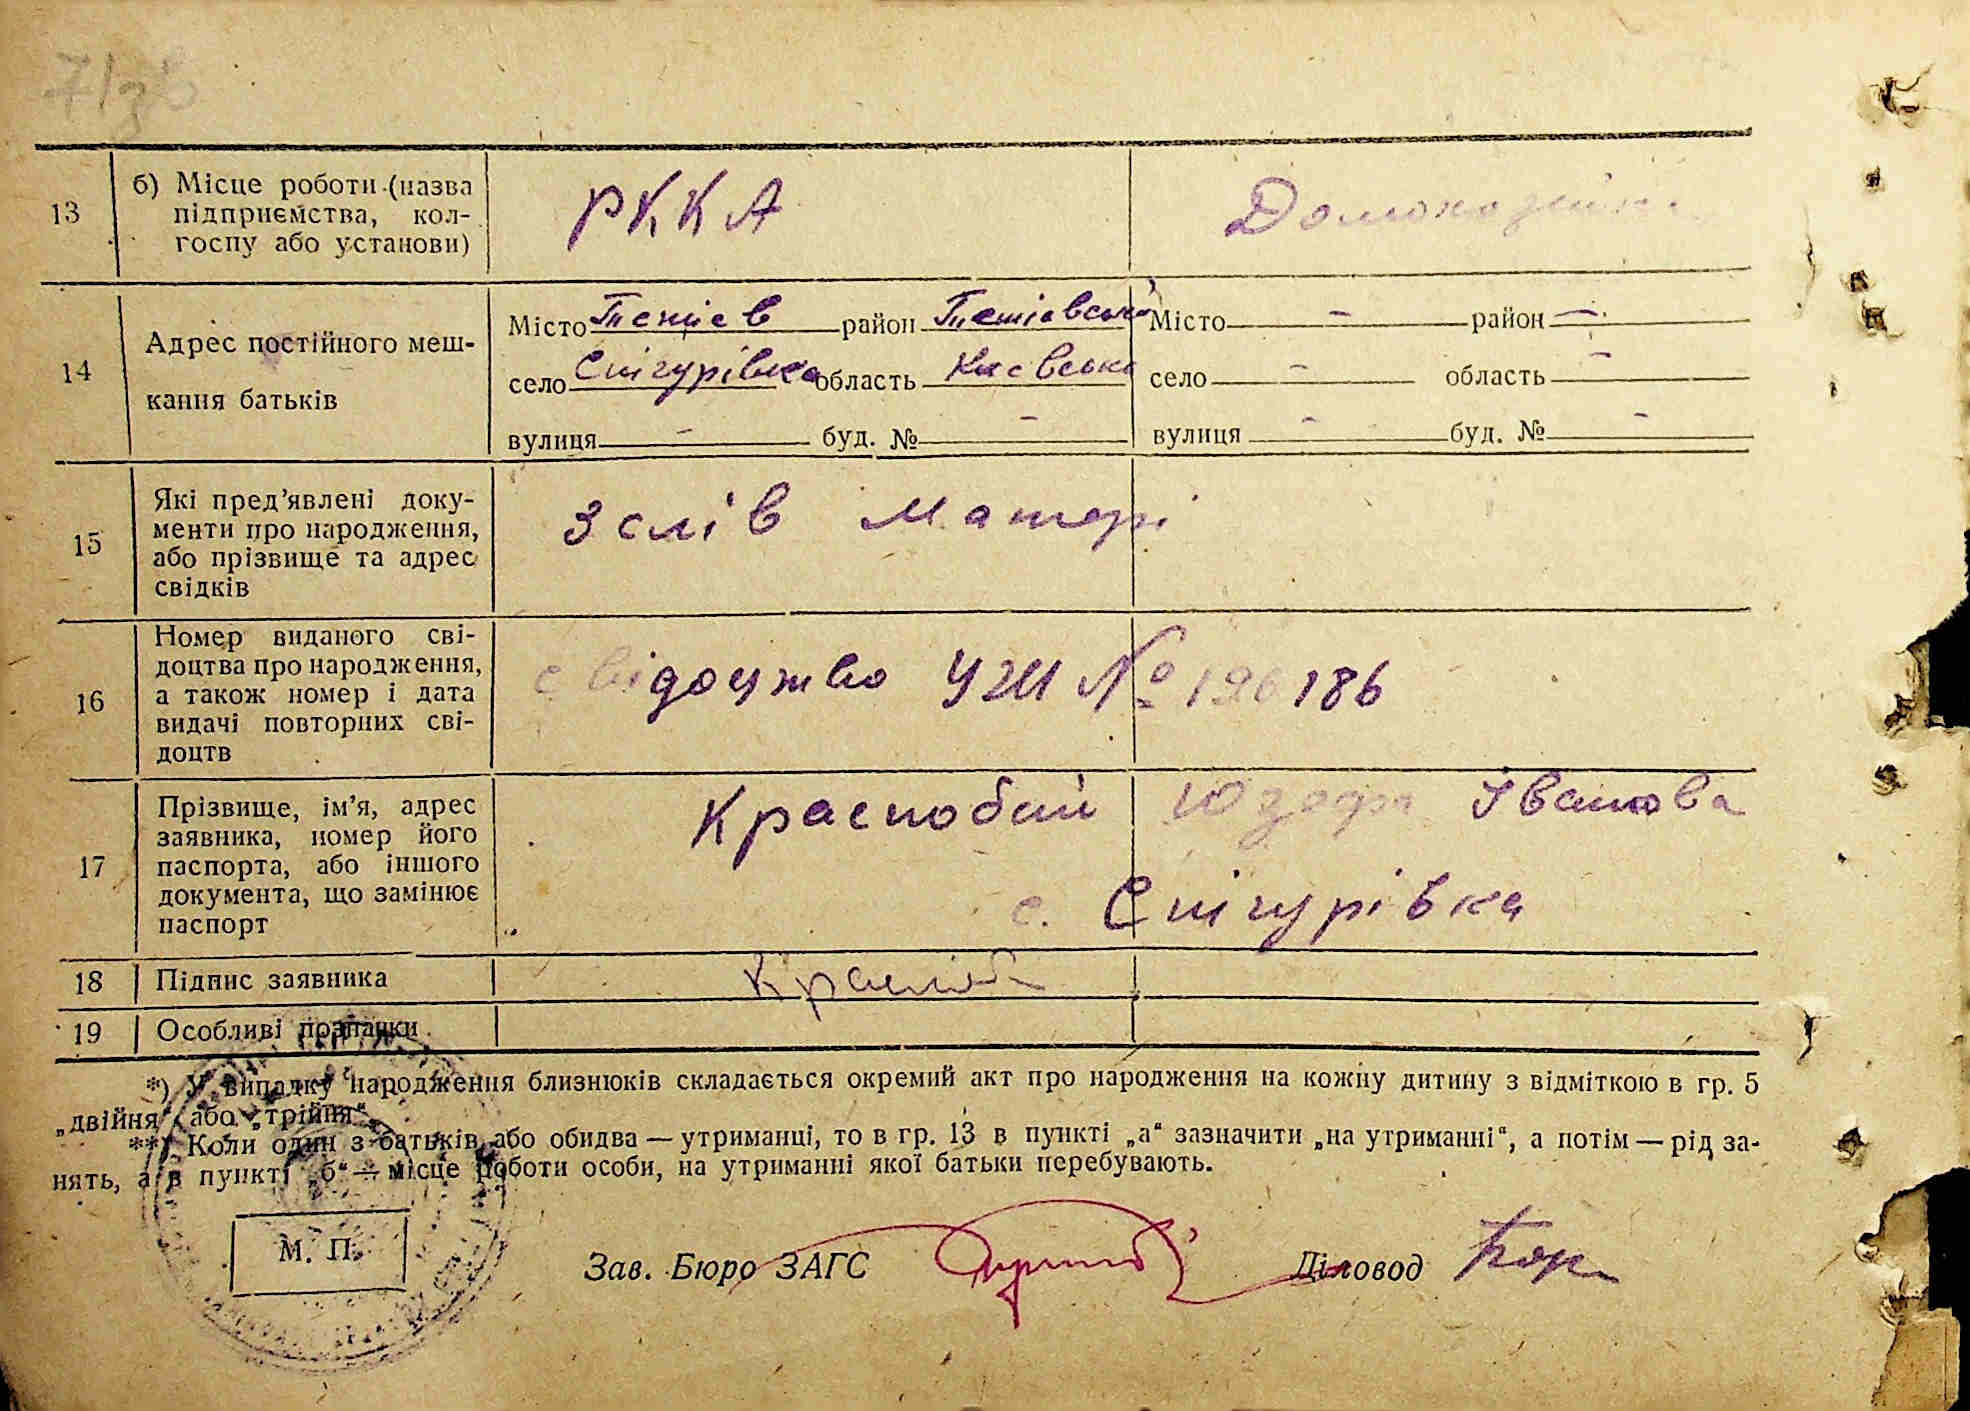 13 б) Місце роботи (назва РККА
підприємства, кол-
госпу або установи)
14 Адрес постійного меш-
кання батьків
Місто Тетіев район Тетіівськ Місто — район —
село Снігурівка область Киевська село — область —
вулиця — буд. № — вулиця — буд. № —
15 Які пред'явлені доку-
менти про народження,
або прізвище та адрес
свідків
З слів матері
16 Номер виданого сві-
доцтва про народження,
а також номер і дата
видачі повторних сві-
доцтв
свідоцтво УЖ № 196186
17 Прізвище, ім'я, адрес
заявника, номер його
паспорта, або іншого
документа, що замінює
паспорт
Краснобай Юзефа Іванова
с. Снігурівка
18 Підпис заявника
19 Особливі
*) У випадку народження близнюків складається окремий акт про народження на кожну дитину з відміткою в гр. 5
„двійня“ або „трійня“.
**) Коли один з батьків або обидва — утриманці, то в гр. 13 в пункті „а“ зазначити „на утриманні“, а потім — рід за-
нять, а в пункті „б“ — місце роботи особи, на утриманні якої батьки перебувають.
М. П.
Зав. Бюро ЗАГС Діловод